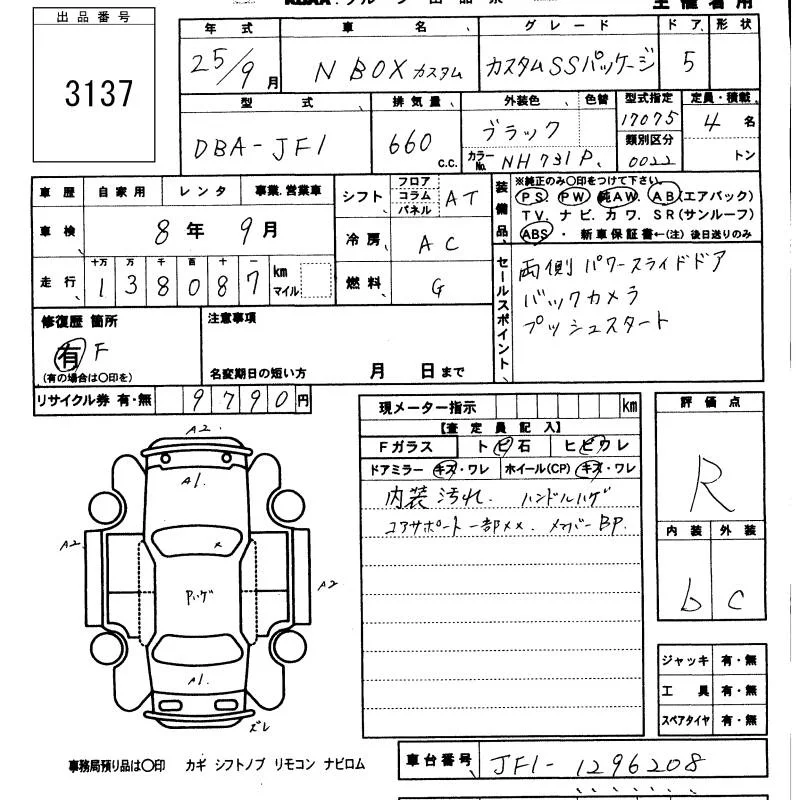 出品番号
3137
年式 車名 グレード ドア 形状
25/9月 N BOX カスタム カスタムSSパッケージ 5
型式 排気量 外装色 色替 型式指定 定員・積載
DBA-JF1 660 c.c. ブラック 17075 4名
カラーNo. NH731P 類別区分 0022 トン
車歴 自家用 レンタ 事業.営業車
車検 8年 9月
走行 十万 万 千 百 十 一
138087 km マイル
シフト フロア コラム パネル AT
冷房 AC
燃料 G
装備品 ※純正のみ〇印をつけて下さい。
PS PW 純AW AB(エアバック)
TV. ナビ. カワ. SR(サンルーフ)
ABS ・ 新車保証書←(注) 後日送りのみ
セールスポイント
両側 パワースライドドア
バックカメラ
プッシュスタート
修復歴 箇所
有 F
(有の場合は〇印を)
注意事項
名変期日の短い方 月 日まで
リサイクル券 有・無 9790円
現メーター指示 km
【査定員記入】
Fガラス トビ石 ヒビワレ
ドアミラー キズ・ワレ ホイール(CP) キズ・ワレ
内装汚れ. ハンドルハゲ
コアサポート一部××. メンバーBP.
評価点
R
内装 外装
b c
ジャッキ 有・無
工具 有・無
スペアタイヤ 有・無
A2
A1.
A2
×
A2
Pハゲ
A1.
ズレ
事務局預り品は〇印 カギ シフトノブ リモコン ナビロム
車台番号 JF1-1296208